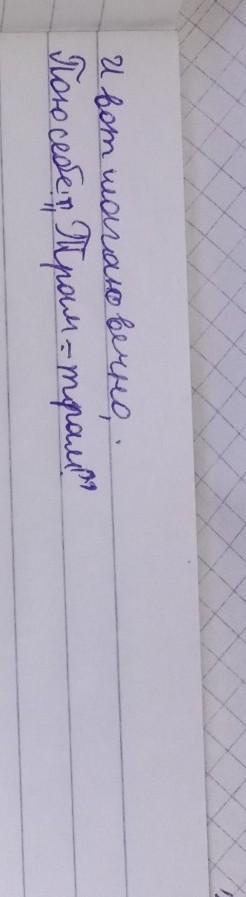 И вот шагаю вечно,
Пою себе: "Трам-трам"